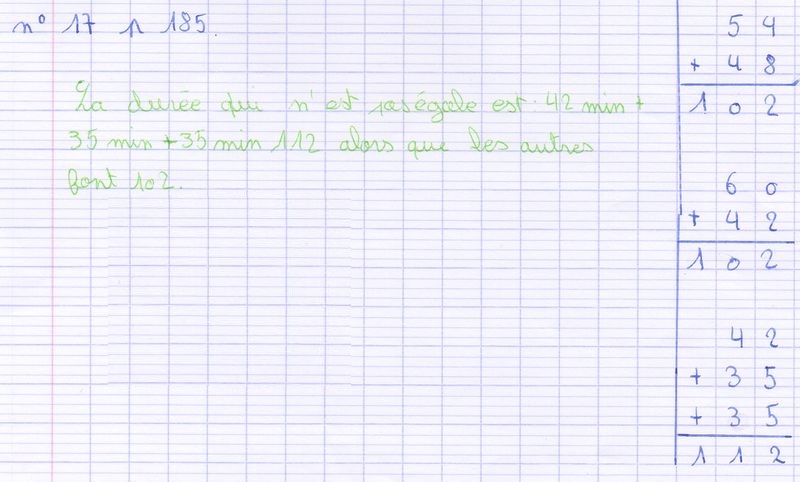 n° 17 p 185.
La durée qui n'est pas égale est : 42 min +
35 min + 35 min 112 alors que les autres
font 102.
5 4
+ 4 8
1 0 2
6 0
+ 4 2
1 0 2
4 2
+ 3 5
+ 3 5
1 1 2